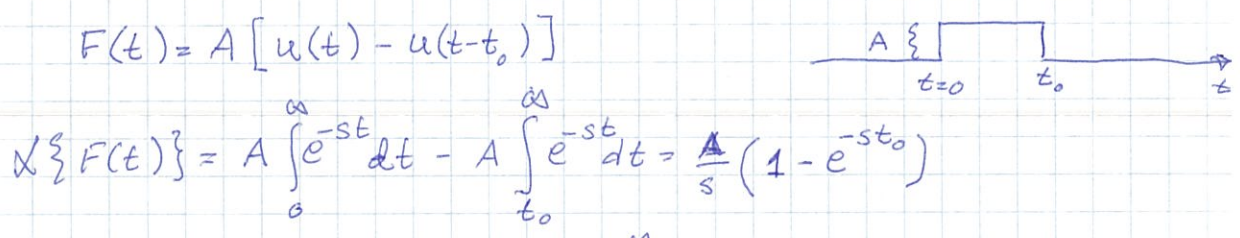 F(t) = A [ u(t) - u(t-t₀) ]
A {
t=0 t₀ t
ℒ{F(t)} = A ∫₀^∞ e^{-st} dt - A ∫_{t₀}^∞ e^{-st} dt = A/s (1 - e^{-st₀})